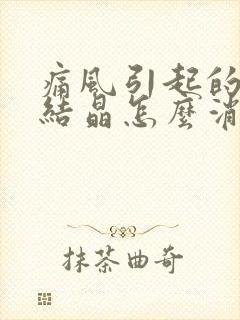 痛風引起的
結晶怎麼消
抹茶曲奇